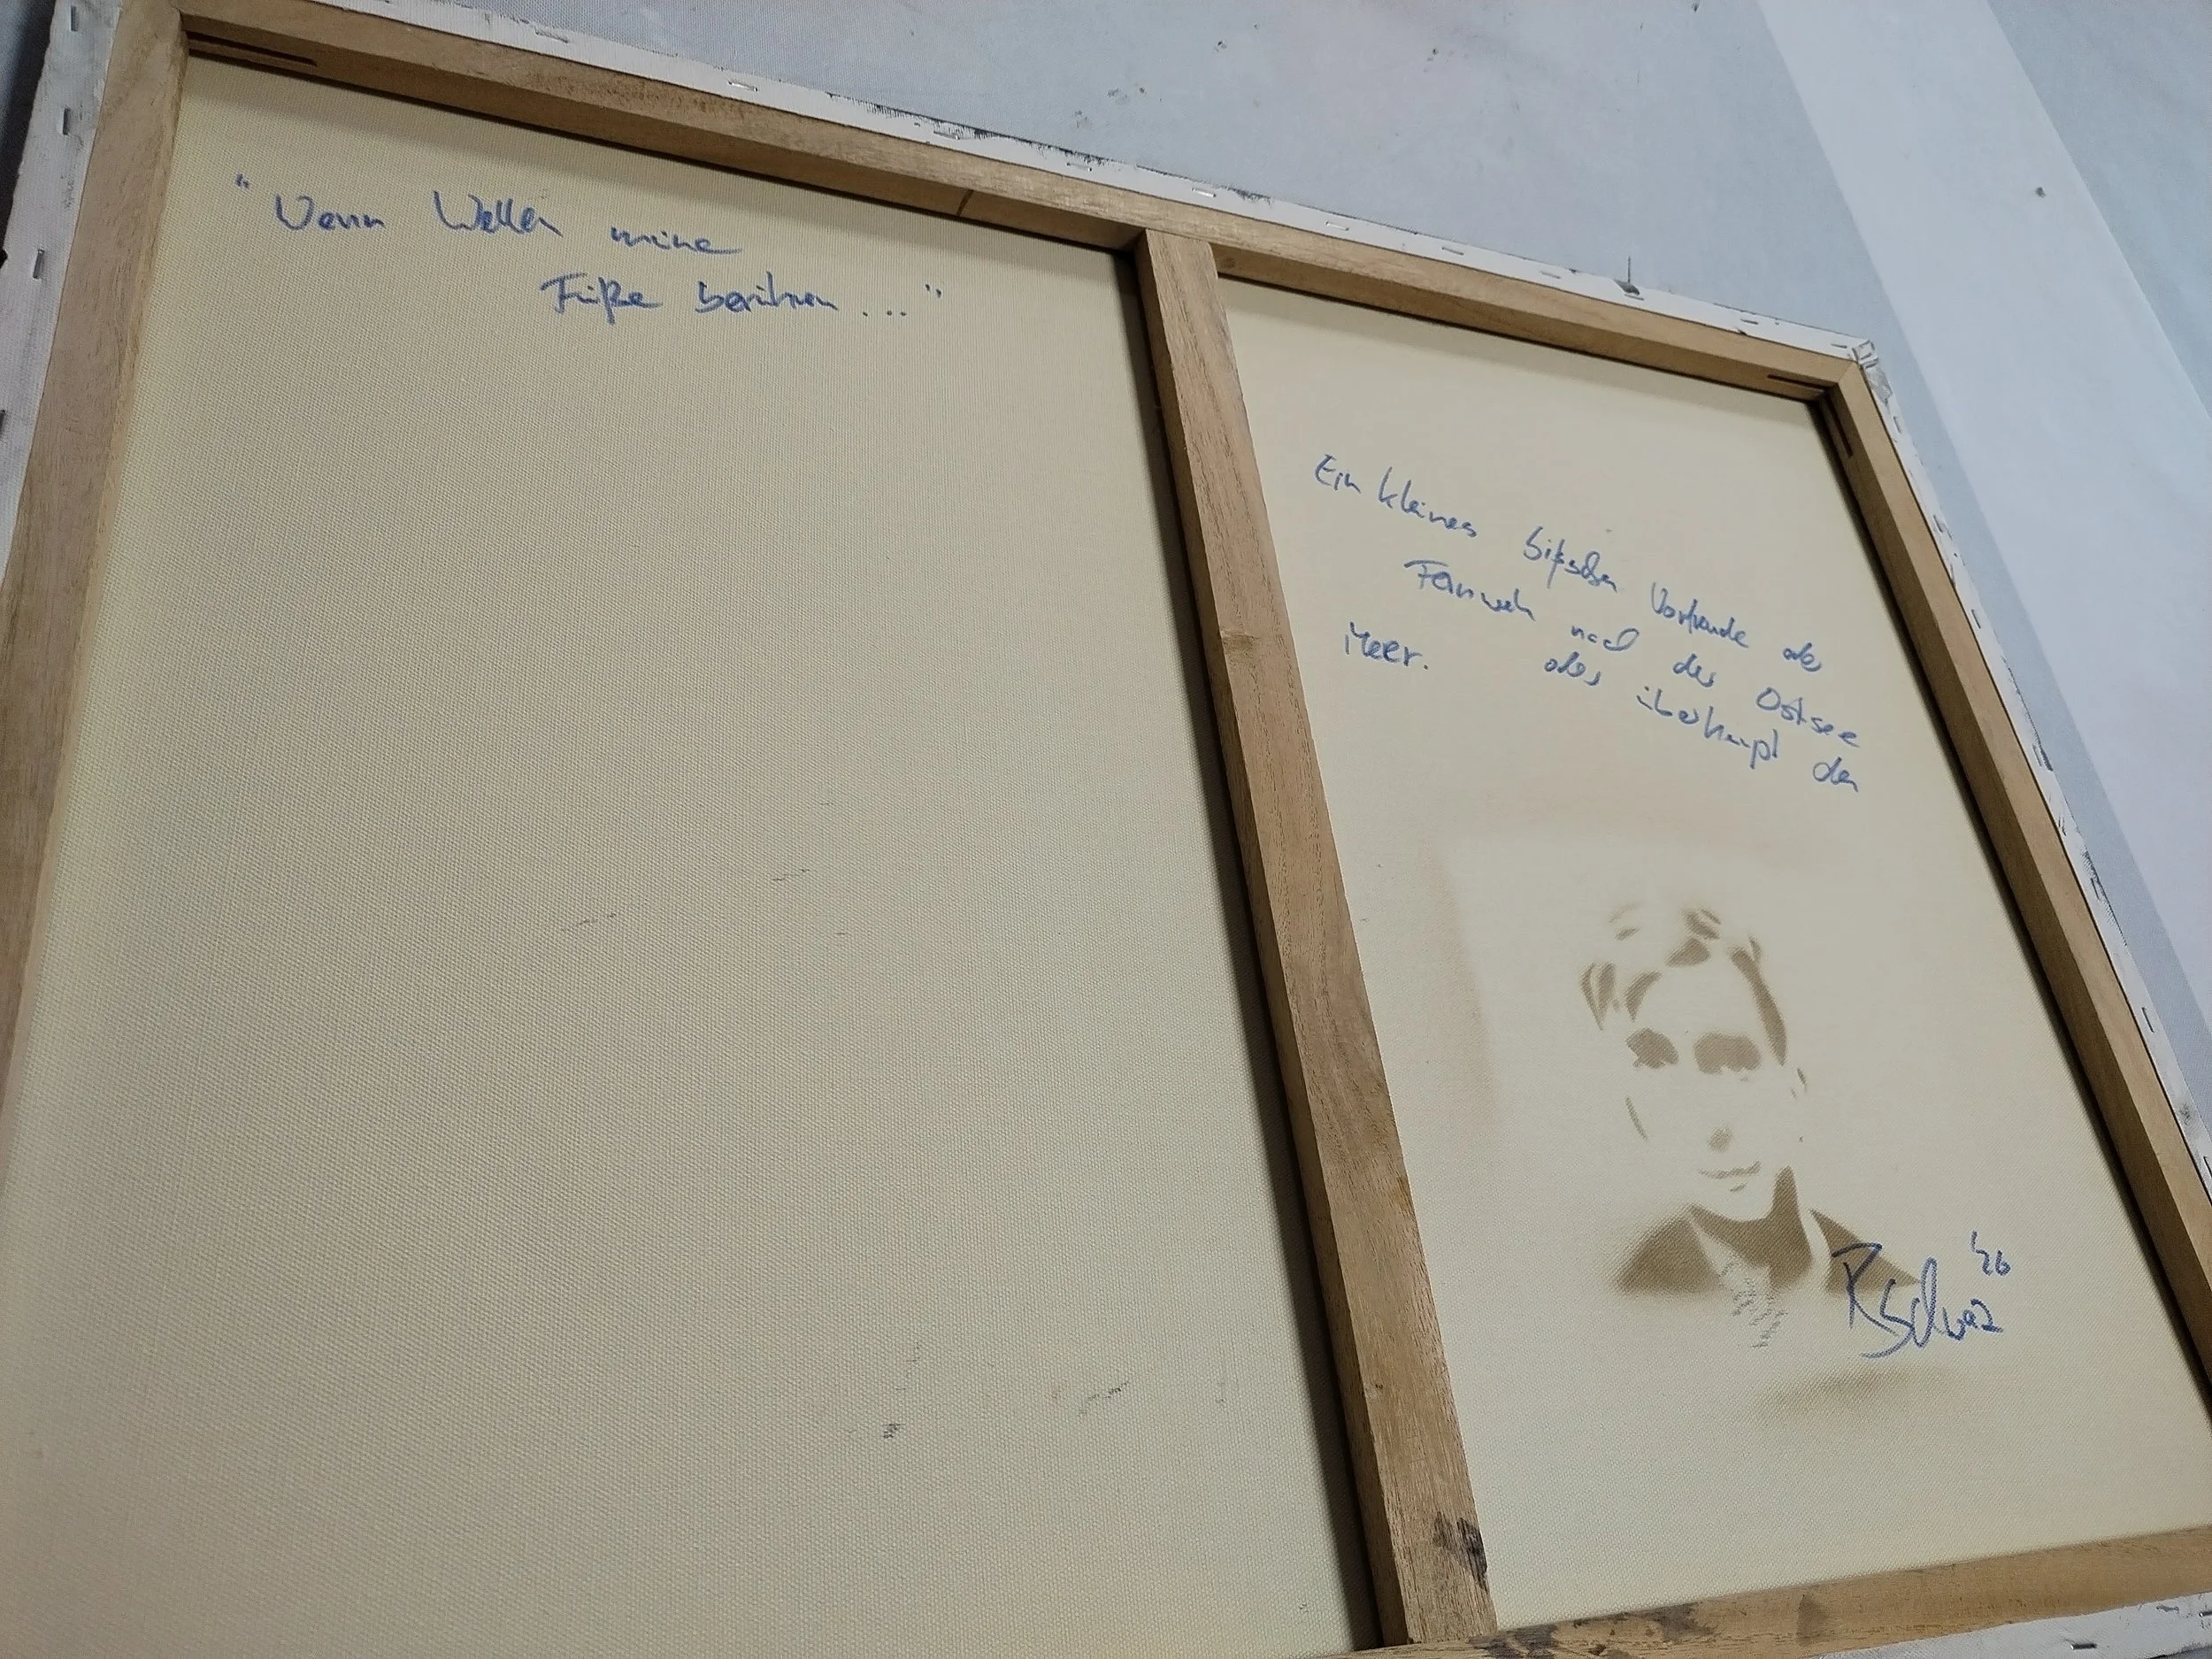 "Wenn Wellen meine
Füße berühren..."
Ein kleines bißchen Vorfreude oder
Fernweh nach der Ostsee
oder überhaupt dem
Meer.
'26